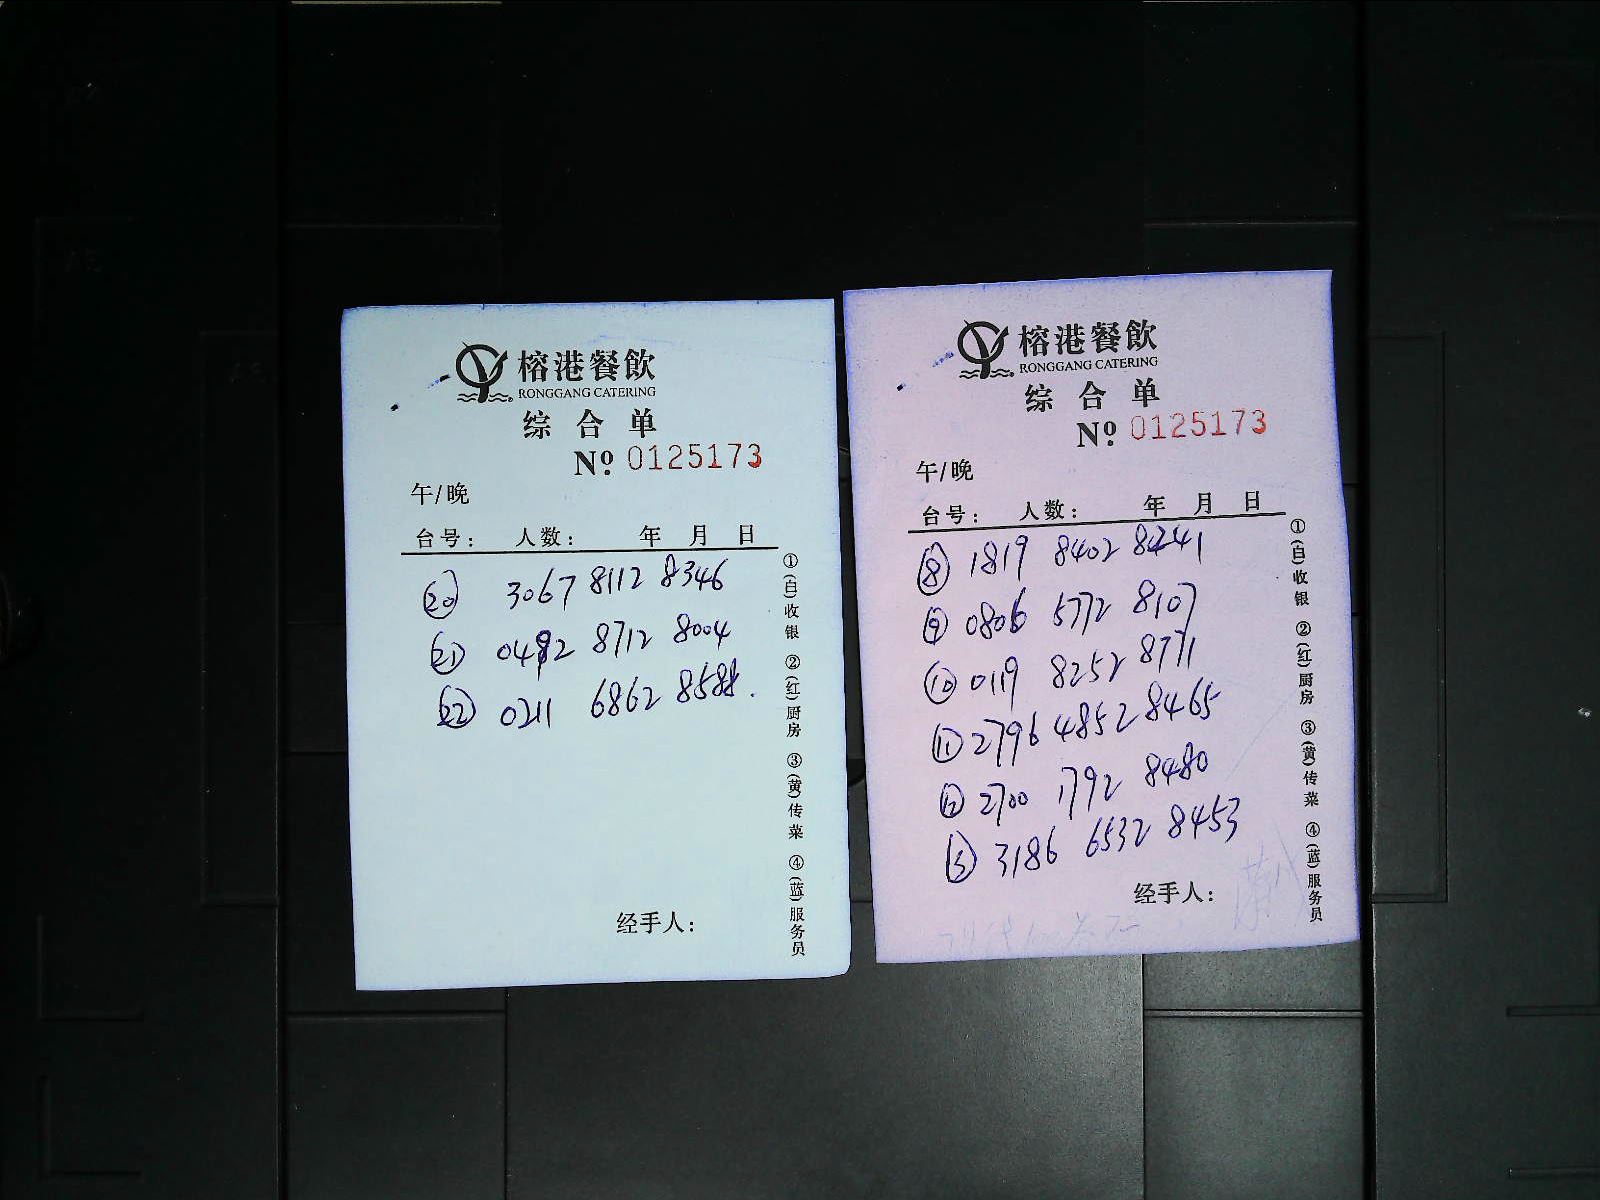 榕港餐飲
RONGGANG CATERING
综合单
№ 0125173
午/晚
台号： 人数： 年 月 日
⑳ 3067 8112 8346
㉑ 0492 8712 8004
㉒ 0211 6862 8588.
经手人：
①(白)收银 ②(红)厨房 ③(黄)传菜 ④(蓝)服务员
榕港餐飲
RONGGANG CATERING
综合单
№ 0125173
午/晚
台号： 人数： 年 月 日
⑧ 1819 8402 8241
⑨ 0806 5772 8107
⑩ 0119 8252 8771
⑪ 2796 4852 8465
⑫ 2700 1792 8480
⑬ 3186 6532 8453
经手人：
①(白)收银 ②(红)厨房 ③(黄)传菜 ④(蓝)服务员